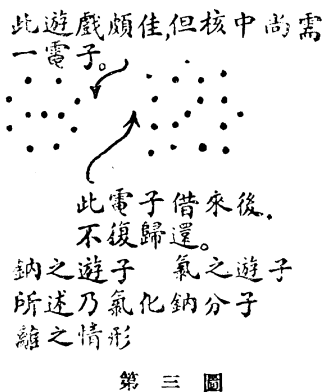 此遊戲頗佳,但核中尚需
一電子。
此電子借來後,
不復歸還。
鈉之遊子 氯之遊子
所述乃氯化鈉分子
離之情形
第三圖